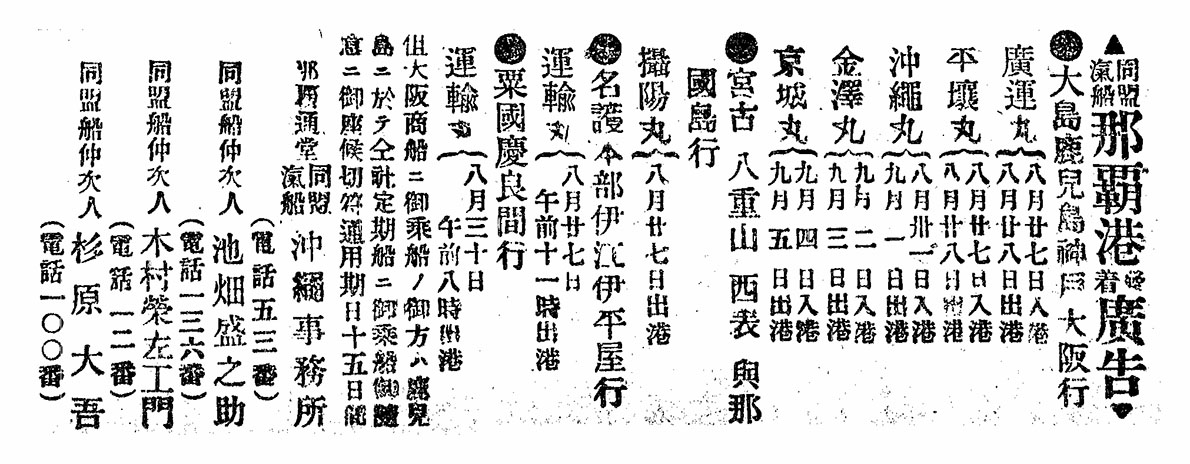 ▲同盟汽船那覇港發着廣告▼
●大島鹿兒島神戸大阪行
廣運丸 八月廿七日入港
八月廿八日出港
平壤丸 八月廿七日入港
八月廿八日出港
沖繩丸 八月卅一日入港
九月一日出港
金澤丸 九月二日入港
九月三日出港
京城丸 九月四日入港
九月五日出港
●宮古 八重山 西表 與那
國島行
攝陽丸 八月廿七日出港
●名護本部伊江伊平屋行
運輸丸 八月廿七日
午前十一時出港
●粟國慶良間行
運輸丸 八月三十日
午前八時出港
但大阪商船ニ御乘船ノ御方ハ鹿兒
島ニ於テ仝社定期船ニ御乘船御隨
意ニ御座候切符通用期日十五日間
那覇通堂 同盟汽船 沖繩事務所
(電話五三番)
同盟船仲次人 池畑盛之助
(電話一三六番)
同盟船仲次人 木村榮左工門
(電話一二番)
同盟船仲次人 杉原大吾
(電話一〇〇番)